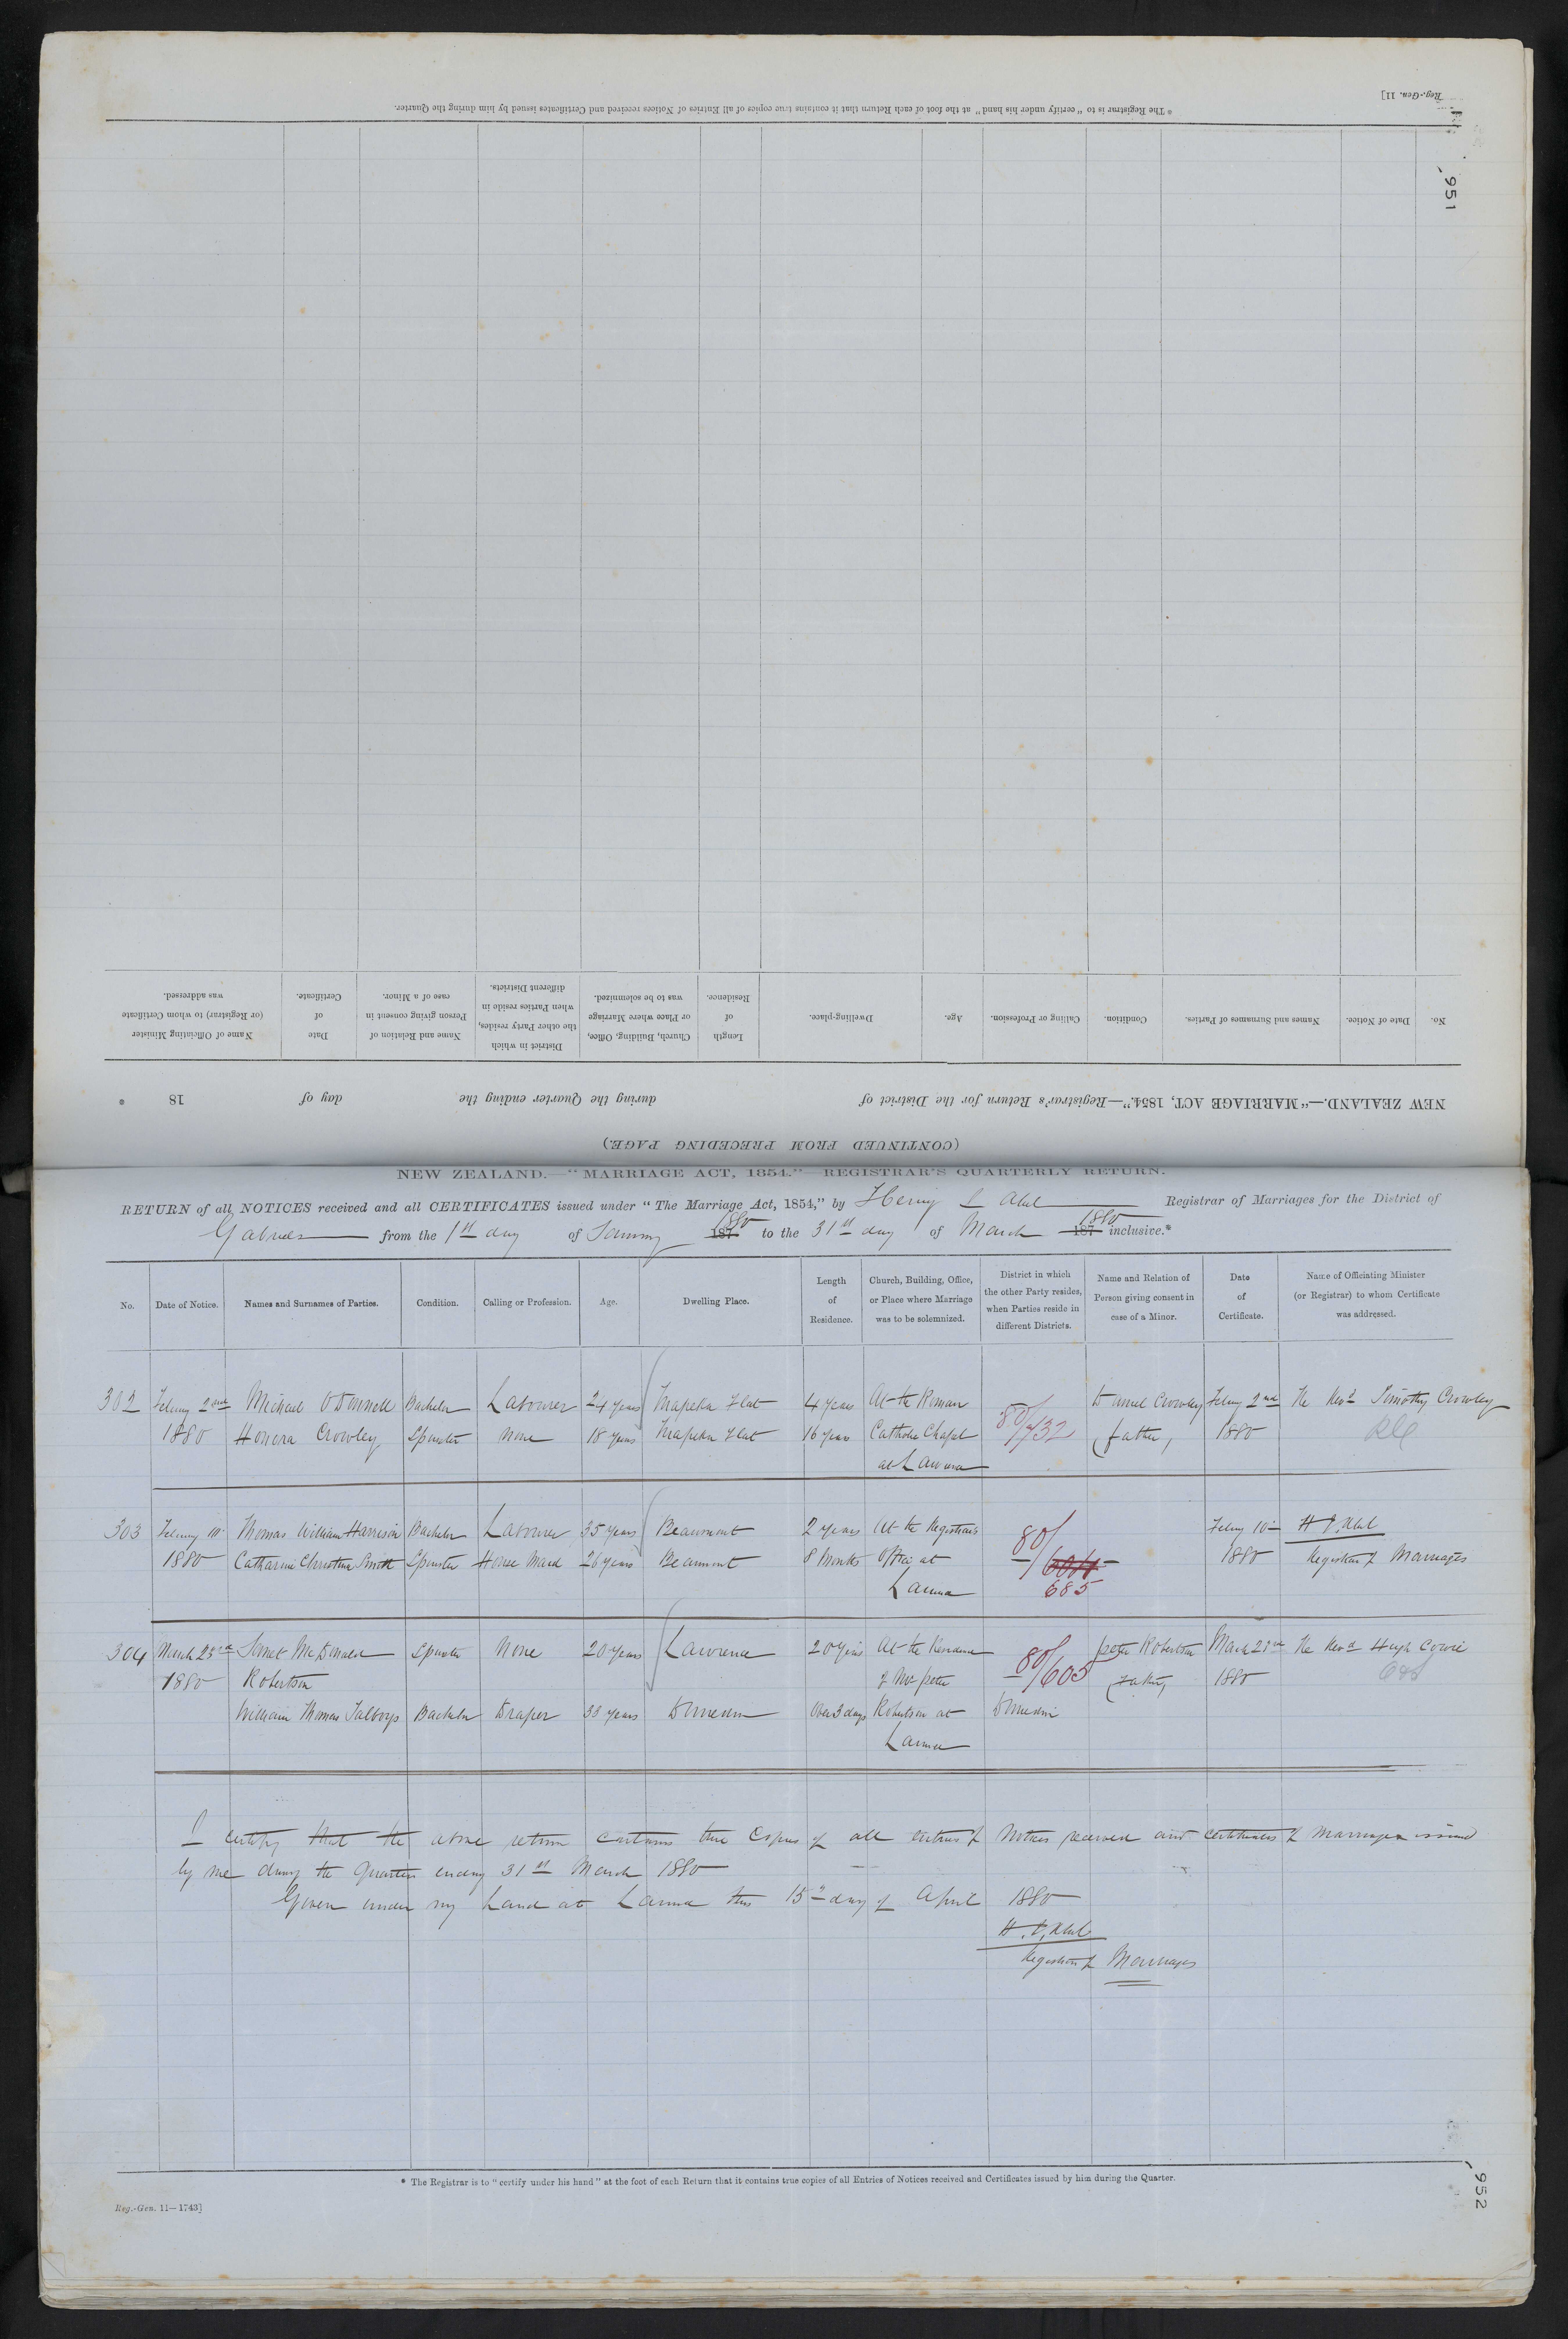 Reg.-Gen. 11]
* The Registrar is to "certify under his hand" at the foot of each Return that it contains true copies of all Entries of Notices received and Certificates issued by him during the Quarter.
951
(CONTINUED FROM PRECEDING PAGE.)
NEW ZEALAND.—"MARRIAGE ACT, 1854."—Registrar's Return for the District of during the Quarter ending the day of 18 *
No. Date of Notice. Names and Surnames of Parties. Condition. Calling or Profession. Age. Dwelling-place. Length of Residence. Church, Building, Office, or Place where Marriage was to be solemnized. District in which the other Party resides, when Parties reside in different Districts. Name and Relation of Person giving consent in case of a Minor. Date of Certificate. Name of Officiating Minister (or Registrar) to whom Certificate was addressed.
NEW ZEALAND.—"MARRIAGE ACT, 1854."—REGISTRAR'S QUARTERLY RETURN.
RETURN of all NOTICES received and all CERTIFICATES issued under "The Marriage Act, 1854," by Henry Abel Registrar of Marriages for the District of
Gabriels from the 1st day of January 187 1880 to the 31st day of March 187 1880 inclusive.*
No. Date of Notice. Names and Surnames of Parties. Condition. Calling or Profession. Age. Dwelling Place. Length of Residence. Church, Building, Office, or Place where Marriage was to be solemnized. District in which the other Party resides, when Parties reside in different Districts. Name and Relation of Person giving consent in case of a Minor. Date of Certificate. Name of Officiating Minister (or Registrar) to whom Certificate was addressed.
302 Febuary 2nd Michael O'Donnell Bachelor Labourer 24 years Tuapeka Flat 4 years At the Roman 80/732 Daniel Crowley Febuy 2nd The Revd Timothy Crowley
1880 Honora Crowley Spinster None 18 years Tuapeka Flat 16 years Catholic Chapel father, 1880 RC
at Lawrence
303 Febuary 10 Thomas William Harrison Bachelor Labourer 35 years Beaumont 2 years At the Registrar's 80/ Febuy 10th H. J. Abel
1880 Catharine Christina Smith Spinster House Maid 26 years Beaumont 8 Months Office at 1880 Registrar of Marriages
Lawrence 685
304 March 23rd Janet McDonald Spinster None 20 years Lawrence 20 years At the Residence 80/605 Peter Robertson March 23rd The Revd Hugh Cowie
1880 Robertson of Mr Peter Father, 1880
William Thomas Talboys Bachelor Draper 33 years Dunedin Over 3 days Robertson at Dunedin
Lawrence
I certify that the above return contains true Copies of all entries of Notices received and certificates of marriages issued
by me during the Quarter ending 31st March 1880
Given under my hand at Lawrence this 15th day of April 1880
H. J. Abel
Registrar of Marriages
* The Registrar is to "certify under his hand" at the foot of each Return that it contains true copies of all Entries of Notices received and Certificates issued by him during the Quarter.
Reg.-Gen. 11—1743]
952